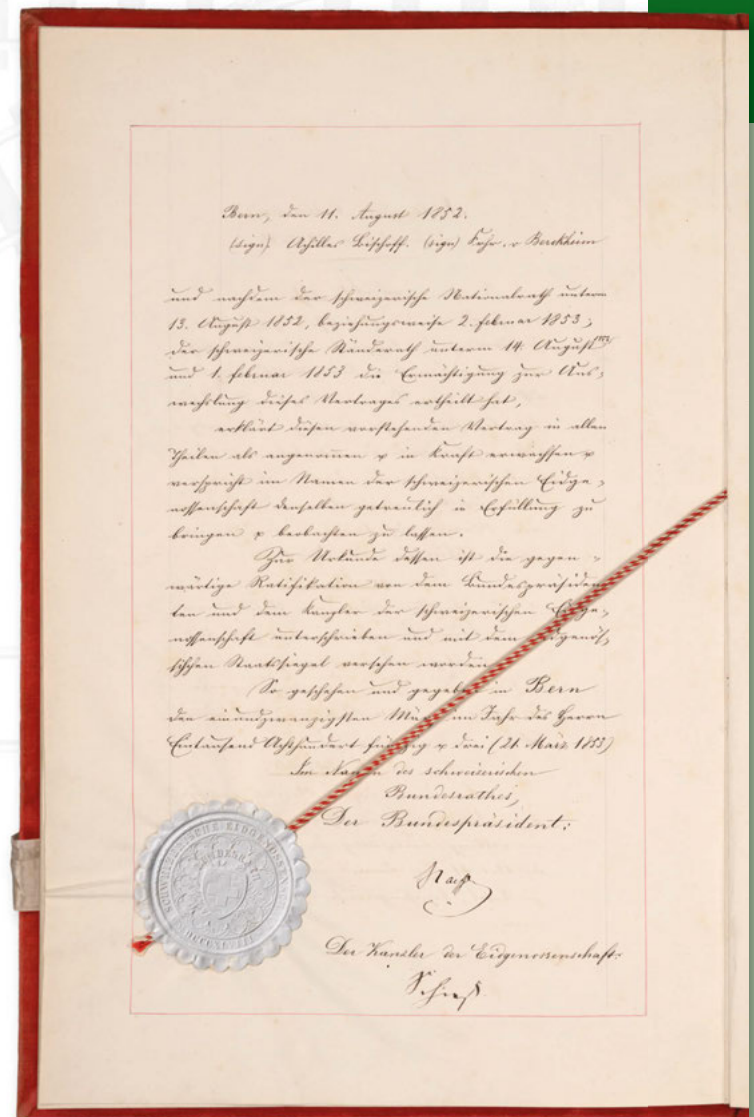 Bern, den 11. August 1852.
(sign). Achilles Bischoff. (sign) Frhr. v Berckheim
und nachdem der schweizerische Nationalrath unterm
13. August 1852, beziehungsweise 2. Februar 1853;
der schweizerische Ständerath unterm 14. August
und 1. Februar 1853 die Ermächtigung zur Aus-
wechslung dieses Vertrages ertheilt hat,
erklärt diesen vorstehenden Vertrag in allen
Theilen als angenommen & in Kraft erwachsen &
verspricht im Namen der schweizerischen Eidge-
nossenschaft denselben getreulich in Erfüllung zu
bringen & beobachten zu lassen.
Zur Urkunde dessen ist die gegen-
wärtige Ratifikation von dem Bundespräsiden-
ten und dem Kanzler der schweizerischen Eidge-
nossenschaft unterschrieben und mit dem eidgenös-
sischen Staatssiegel versehen worden
So geschehen und gegeben in Bern
den einundzwanzigsten März im Jahr des Herrn
Eintausend Achthundert fünfzig & drei (21. März 1853)
Im Namen des schweizerischen
Bundesrathes,
Der Bundespräsident:
Naeff
Der Kanzler der Eidgenossenschaft:
Schiess
SCHWEIZERISCHE EIDGENOSSENSCHAFT
BUNDESRATH